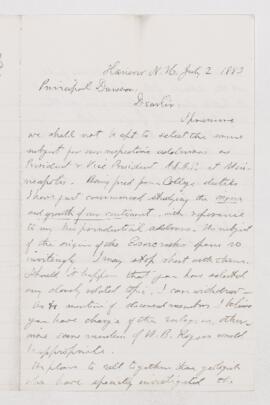 Hanover N.H. July 2 1883
Principal Dawson
Dear Sir,
I presume
we shall not be apt to select the same
subject for our respective addresses as
President & Vice President A.A.A.S. at Min-
neapolis. Being freed from College duties
I have just commenced studying the origin
and growth of our continent, with reference
to my Vice presidential address. The subject
of the origin of the Eozoic rocks opens so
invitingly I may stop short with them.
Should it happen that you have selected
any closely related topic, I can withdraw—
As to mention of deceased members I believe
you have charge of the eulogies, other-
wise some mention of W. B. Rogers would
be appropriate.
We plans to call together the geologists
who have specially investigated the